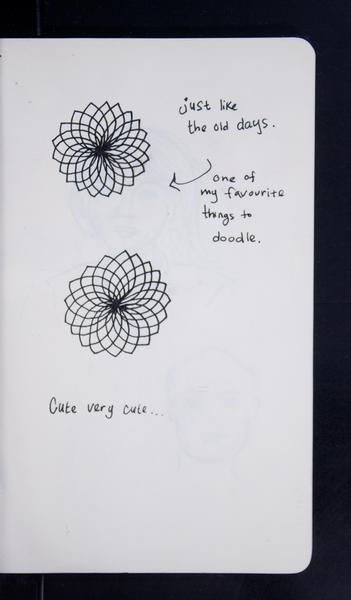 just like
the old days.
one of
my favourite
things to
doodle.
Cute very cute...